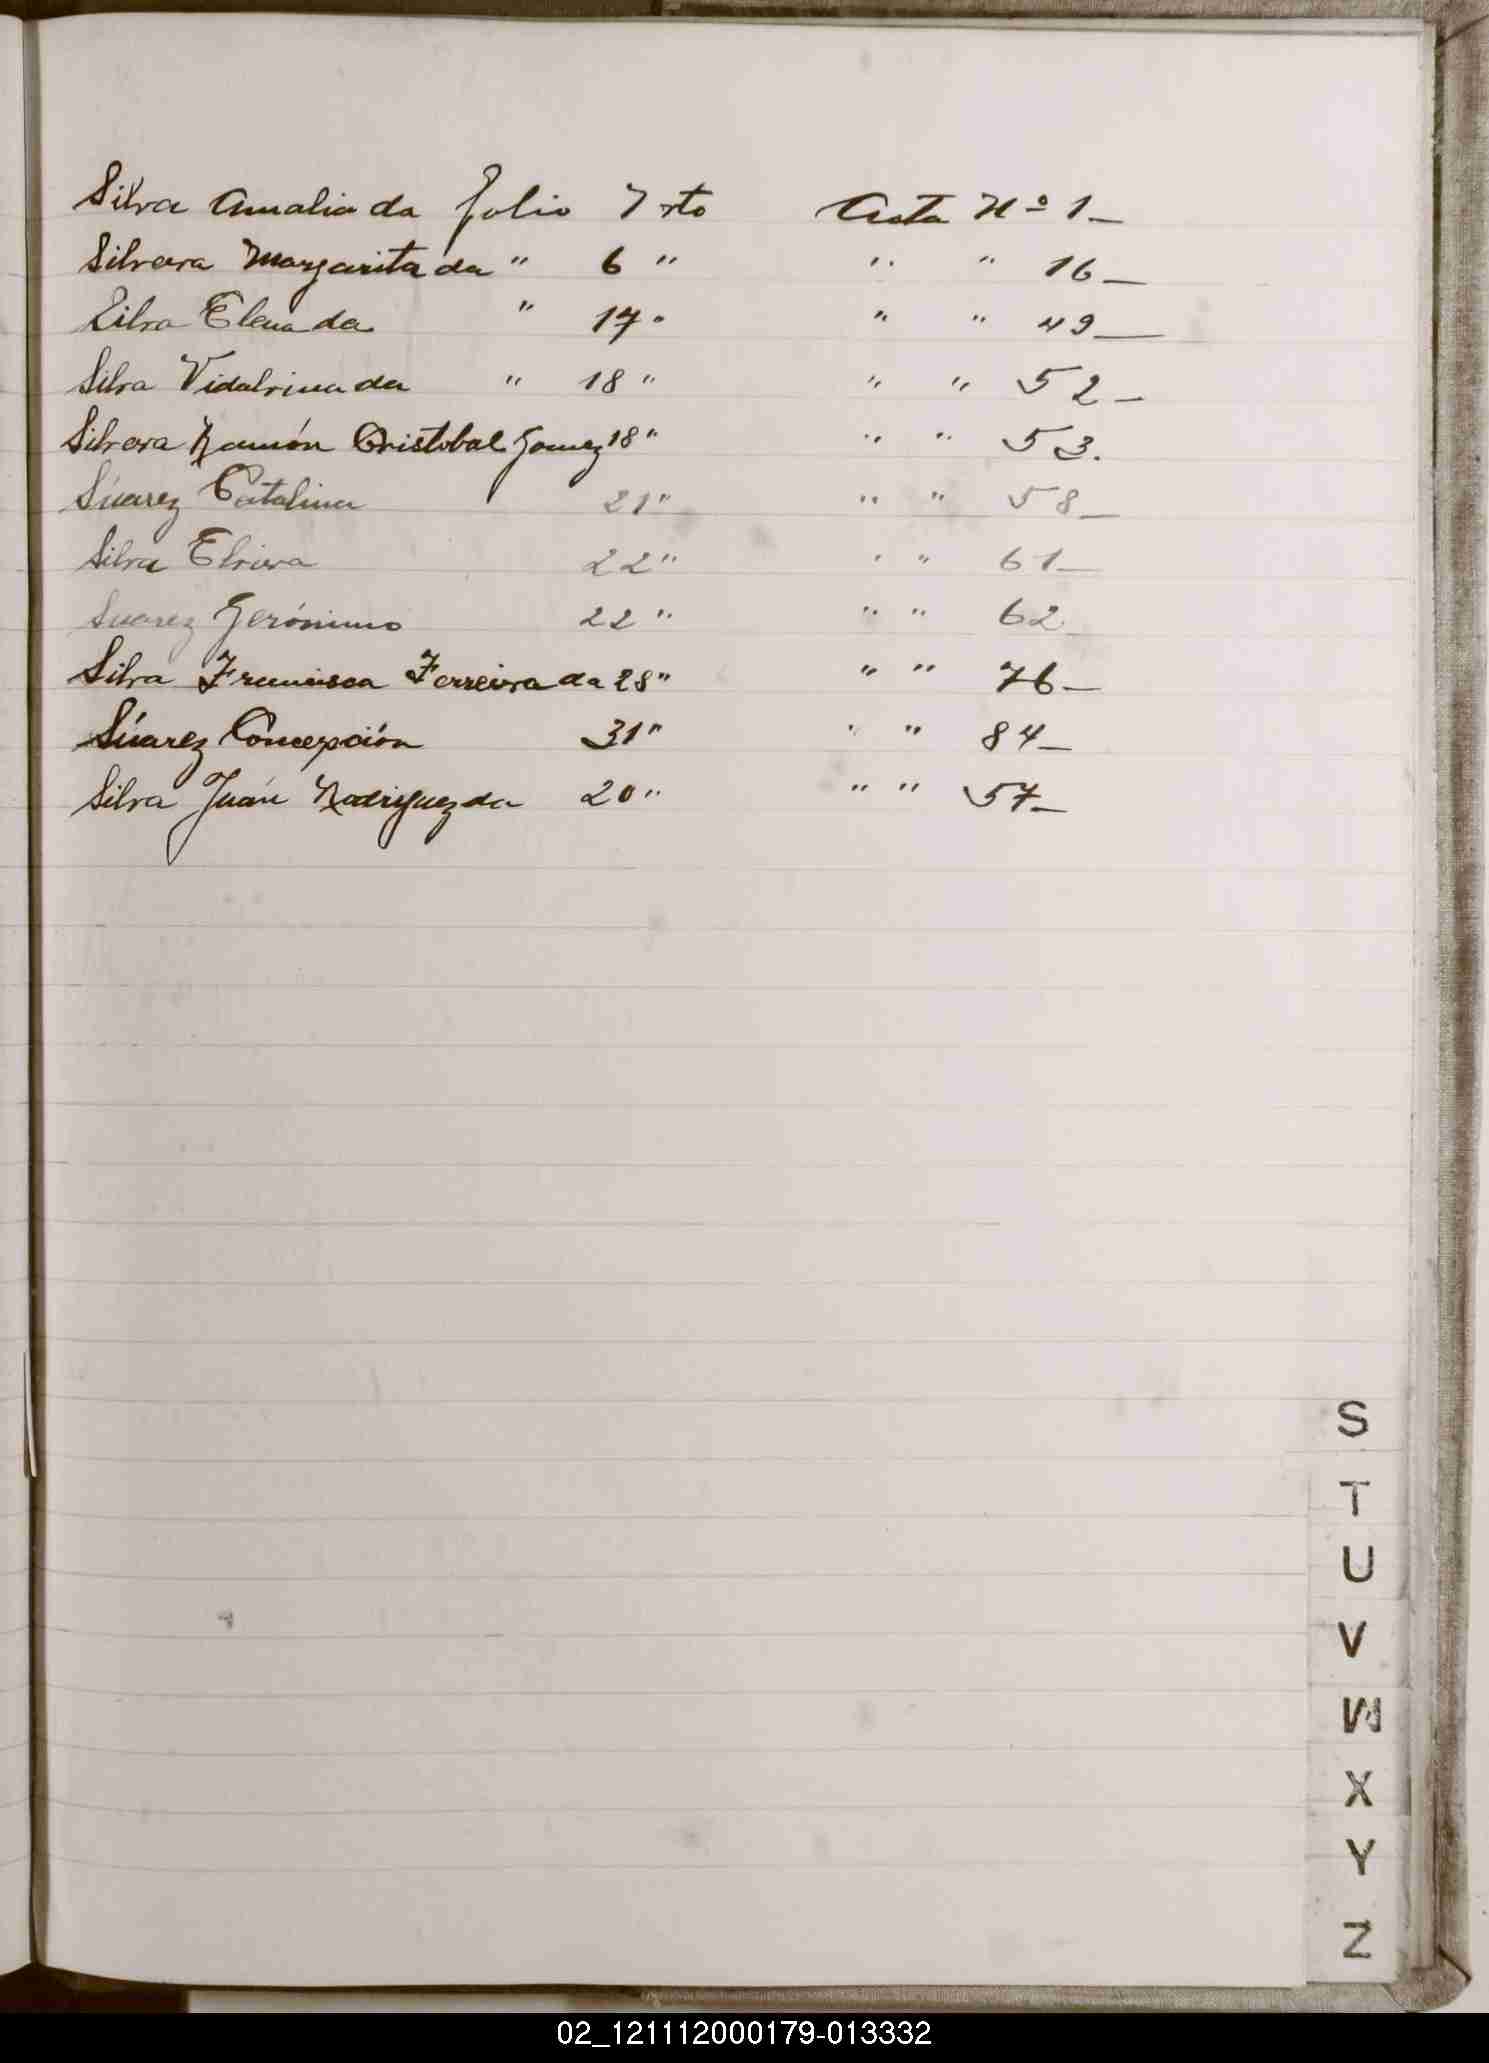 Silva Amalia da folio 1 rto Acta Nº 1_
Silveira Margarita da " 6 " " " 16_
Silva Elena da " 17 " " " 49_
Silva Vidalvina da " 18 " " " 52_
Silveira Ramón Cristobal Gomez 18 " " " 53.
Súarez Catalina 21 " " " 58_
Silva Elvira 22 " " " 61_
Suarez Gerónimo 22 " " " 62_
Silva Francisca Ferreira da 28 " " " 76_
Súarez Concepción 31 " " " 84_
Silva Juán Rodriguez da 20 " " " 57_
S
T
U
V
W
X
Y
Z
02_121112000179-013332